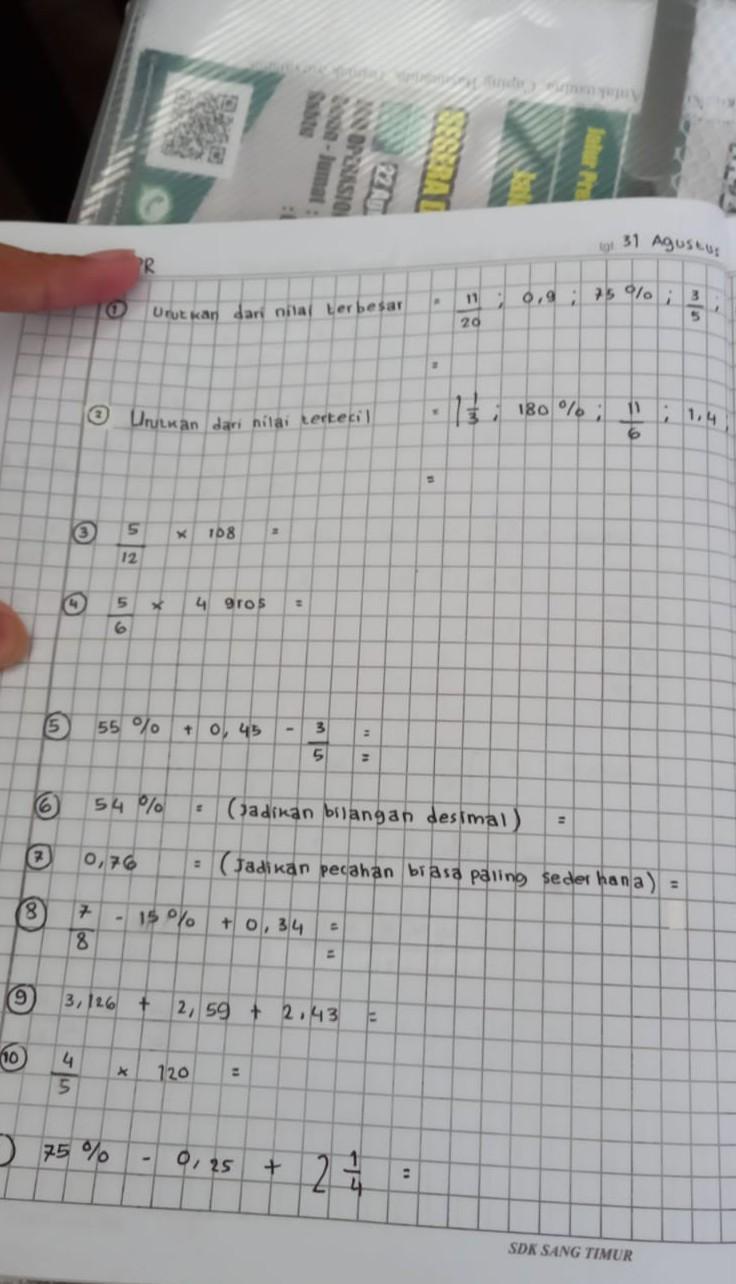 SESERA
22 Ag
Senin - Jumat :
Sabtu
PR
tgl. 31 Agustus
① Urutkan dari nilai terbesar = 11/20 ; 0,9 ; 75 % ; 3/5 ;
=
② Urutkan dari nilai terkecil = 1 1/3 ; 180 % ; 11/6 ; 1,4 ,
=
③ 5/12 × 108 =
④ 5/6 × 4 gros =
⑤ 55 % + 0,45 - 3/5 =
=
⑥ 54 % = (Jadikan bilangan desimal) =
⑦ 0,76 = (Jadikan pecahan biasa paling sederhana) =
⑧ 7/8 - 15 % + 0,34 =
=
⑨ 3,126 + 2,59 + 2.43 =
⑩ 4/5 × 120 =
) 75 % - 0,25 + 2 1/4 =
SDK SANG TIMUR